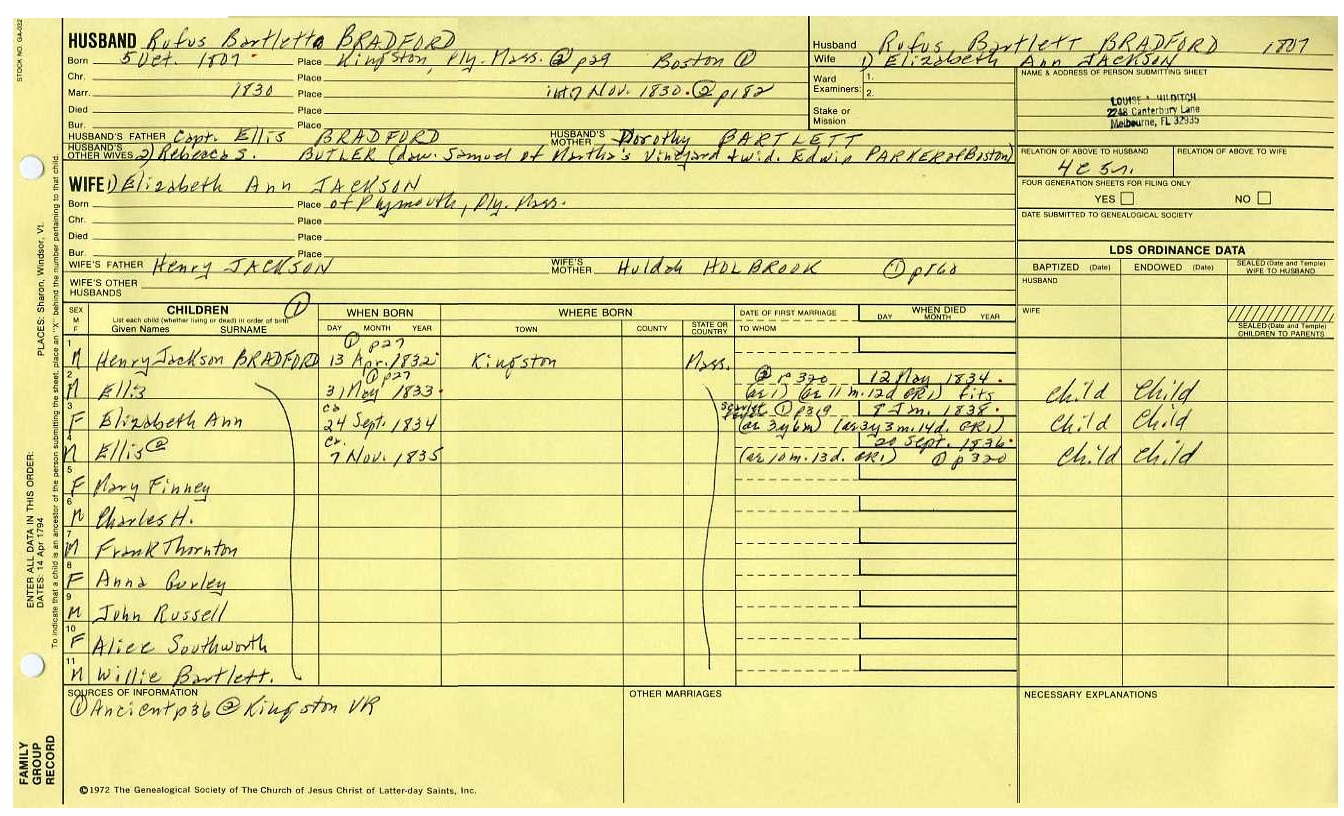 STOCK NO. GA-932
HUSBAND Rufus Bartlett BRADFORD
Born 5 Oct. 1807 Place Kingston, Ply. Mass. ② p29 Boston ①
Chr. Place
Marr. 1830 Place int 7 Nov. 1830. ② p182
Died Place
Bur. Place
HUSBAND'S FATHER Capt. Ellis BRADFORD HUSBAND'S MOTHER Dorothy BARTLETT
HUSBAND'S OTHER WIVES 2) Rebecca S. BUTLER (daw. Samuel of Martha's Vineyard + wid. Edwin PARKER of Boston)
Husband Rufus Bartlett BRADFORD 1807
Wife 1) Elizabeth Ann JACKSON
Ward Examiners: 1.
2.
Stake or Mission
NAME & ADDRESS OF PERSON SUBMITTING SHEET
LOUISE HILDITCH
2248 Canterbury Lane
Melbourne, FL 32935
RELATION OF ABOVE TO HUSBAND RELATION OF ABOVE TO WIFE
4c 5r.
FOUR GENERATION SHEETS FOR FILING ONLY
YES NO
DATE SUBMITTED TO GENEALOGICAL SOCIETY
WIFE 1) Elizabeth Ann JACKSON
Born Place of Plymouth, Ply. Mass.
Chr. Place
Died Place
Bur. Place
WIFE'S FATHER Henry JACKSON WIFE'S MOTHER Huldah HOLBROOK ① p560
WIFE'S OTHER HUSBANDS
LDS ORDINANCE DATA
BAPTIZED (Date) ENDOWED (Date) SEALED (Date and Temple) WIFE TO HUSBAND
HUSBAND
WIFE
SEALED (Date and Temple) CHILDREN TO PARENTS
SEX M F CHILDREN ① WHEN BORN WHERE BORN DATE OF FIRST MARRIAGE WHEN DIED
List each child (whether living or dead) in order of birth
Given Names SURNAME DAY MONTH YEAR TOWN COUNTY STATE OR COUNTRY TO WHOM DAY MONTH YEAR
① p27
1 M Henry Jackson BRADFORD 13 Apr. 1832 Kingston Mass.
① p27 ② p320 12 May 1834
2 M Ellis 31 May 1833 (ae 1) (ae 11 m. 12d GR1) fits Child Child
ca ① p319 8 Jan. 1838
3 F Elizabeth Ann 24 Sept. 1834 (ae 3y6m) (ae 3y 3m. 14d. GR1) Child Child
ca. 20 Sept. 1836
4 M Ellis @ 7 Nov. 1835 (ae 10 m. 13 d. GR1) ① p320 Child Child
5 F Mary Finney
6 M Charles H.
7 M Frank Thornton
8 F Anna Gurley
9 M John Russell
10 F Alice Southworth
11 M Willie Bartlett.
SOURCES OF INFORMATION OTHER MARRIAGES NECESSARY EXPLANATIONS
① Ancient p36 ② Kingston VR
©1972 The Genealogical Society of The Church of Jesus Christ of Latter-day Saints, Inc.
FAMILY GROUP RECORD
ENTER ALL DATA IN THIS ORDER:
DATES: 14 Apr 1794 PLACES: Sharon, Windsor, Vt.
To indicate that a child is an ancestor of the person submitting the sheet, place an "X" behind the number pertaining to that child.